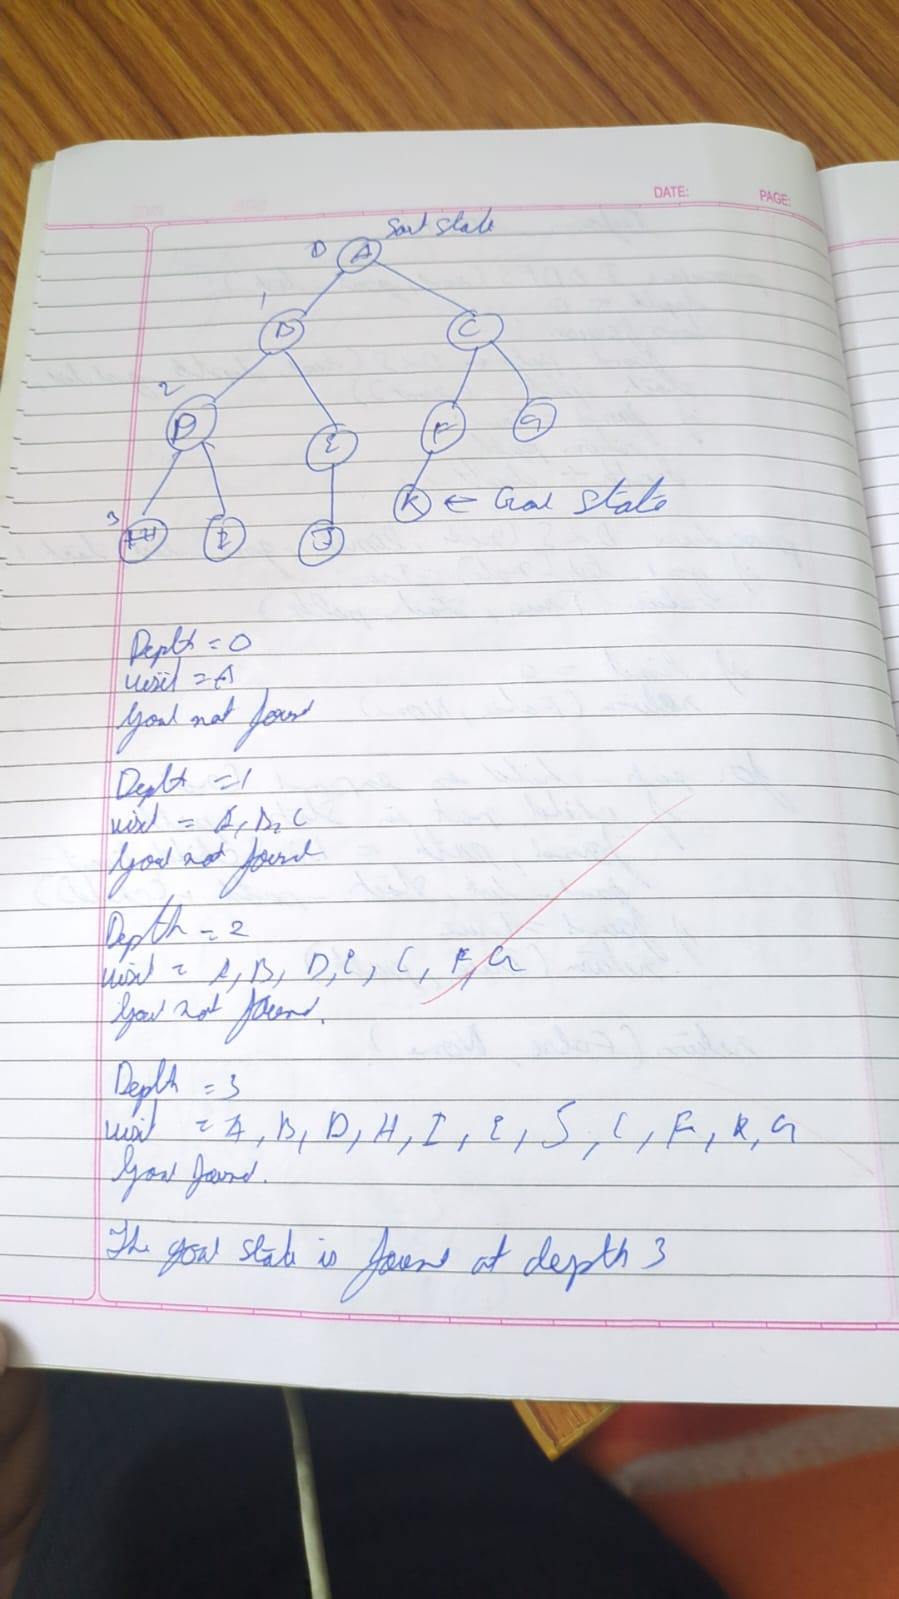 DATE:
PAGE:
Sart State
0 A
1 B C
2 D E F G
K ← Goal State
3 H I J
Depth = 0
visit = A
Goal not found
Depth = 1
visit = A, B, C
Goal not found
Depth = 2
visit = A, B, D, E, C, F, G
Goal not found.
Depth = 3
visit = A, B, D, H, I, E, J, C, F, K, G
Goal found.
The goal state is found at depth 3